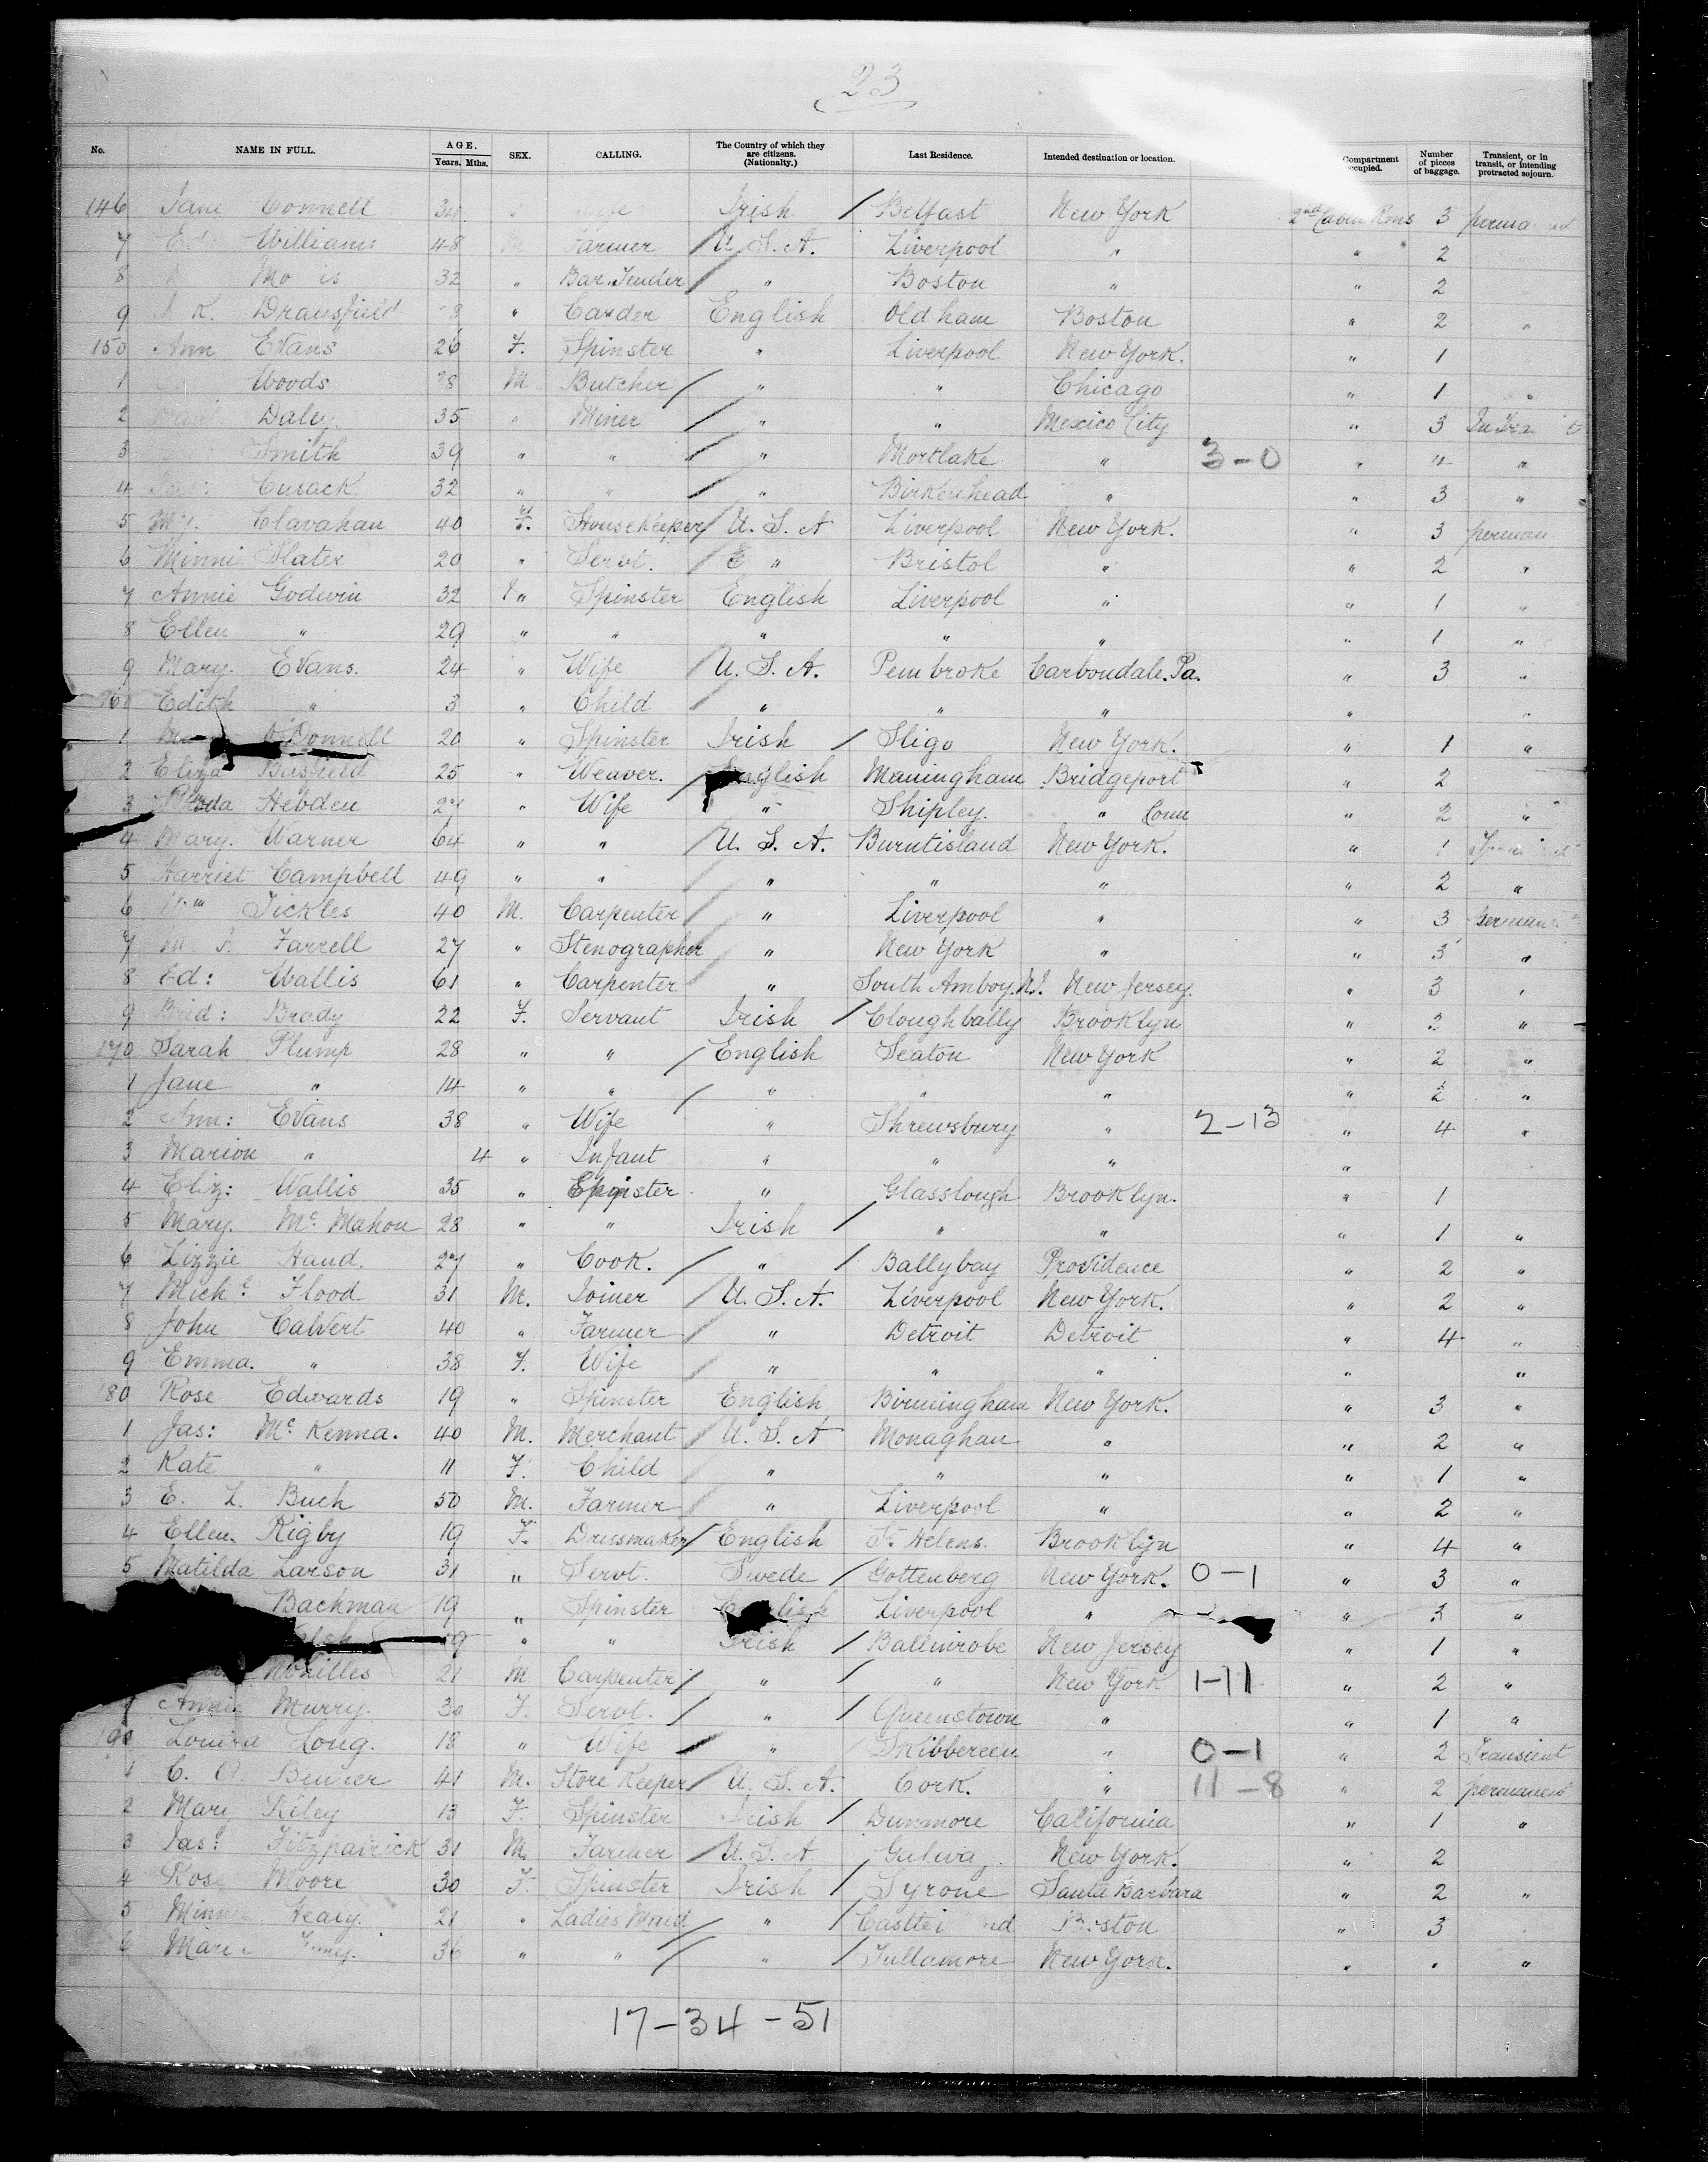 23
No. NAME IN FULL. AGE. Years. Mths. SEX. CALLING. The Country of which they are citizens. (Nationalty.) Last Residence. Intended destination or location. Compartment occupied. Number of pieces of baggage. Transient, or in transit, or intending protracted sojourn.
146 Jane Connell Irish / Belfast New York 2nd Cabin Rms 3
7 Williams 48 M Farmer / U.S.A. Liverpool " " 2
8 32 " Bar Tender / " Boston " " 2
9 K. Dransfield " Carder English Oldham Boston " 2 "
150 Ann Evans 26 F. Spinster " Liverpool New York. " 1
1 Woods M Butcher / " " Chicago " 1 "
2 Daley 35 " Miner / " " Mexico City " 3
3 Smith 39 " " / " Mortlake " 3-0 " 4 "
4 Cusack 32 " " / " Birkenhead " " 3 "
5 Clavahan 40 F. Housekeeper / U.S.A Liverpool New York. " 3
6 Minnie Slater 20 " Servt. / E " Bristol " " 2 "
7 Annie Godwin 32 " Spinster English Liverpool " " 1 "
8 Ellen " 29 " " " " " " 1 "
9 Mary. Evans. 24 " Wife U.S.A. Pembroke Carbondale. Pa. " 3 "
160 Edith " 3 " Child " " " " "
1 O'Donnell 20 " Spinster Irish / Sligo New York. " 1 "
2 Eliza Busfield 25 " Weaver. / English Maningham Bridgeport " 2
3 Hebden 27 " Wife " Shipley. " Conn " 2 "
4 Mary. Warner 64 " " U.S.A. Burntisland New York. " 1
5 Harriet Campbell 49 " " " " " " 2 "
6 Wm Tickles 40 M. Carpenter / " Liverpool " " 3
7 Farrell 27 " Stenographer " New York " " 3 "
8 Ed: Wallis 61 " Carpenter " South Amboy. N.J. New Jersey. " 3 "
9 Brid: Brady 22 F. Servant Irish / Cloughbally Brooklyn " 2 "
170 Sarah Plump 28 " " / English Seaton New York " 2 "
1 Jane " 14 " " / " " " " 2 "
2 Ann: Evans 38 " Wife " Shrewsbury " 2-13 " 4 "
3 Marion " 4 " Infant " " " "
4 Eliz: Wallis 35 " Spinster " Glasslough Brooklyn. " 1
5 Mary. Mc Mahon 28 " " Irish / " " " 1 "
6 Lizzie Hand. 27 " Cook. / " / Ballybay Providence " 2 "
7 Michl. Flood 31 M. Joiner / U.S.A. Liverpool New York. " 2 "
8 John Calvert 40 " Farmer / " Detroit Detroit " 4 "
9 Emma. " 38 F. Wife " " " " "
180 Rose Edwards 19 " Spinster English Birmingham New York. " 3 "
1 Jas: Mc Kenna. 40 M. Merchant / U.S.A Monaghan " " 2 "
2 Kate " 11 F. Child " " " " 1 "
3 E. L. Buch 50 M. Farmer / " Liverpool " " 2 "
4 Ellen Rigby 19 F. Dressmaker / English St. Helens. Brooklyn " 4 "
5 Matilda Larson 31 " Servt. Swede / Gottenberg New York. 0-1 " 3 "
Bachman 19 " Spinster English Liverpool " " 3 "
" " Irish / Ballinrobe New Jersey " 1 "
21 M Carpenter / " / " New York 1-11 " 2 "
Annie Murry. 30 F. Servt. / " / Queenstown " " 1 "
190 Louisa Long. 18 " Wife / " Skibbereen " 0-1 " 2 Transient
1 C. 41 M. Store Keeper / U.S.A. Cork. " 11-8 " 2 permanent
2 Mary Riley 13 F. Spinster Irish / Dunmore California " 1 "
3 Jas: Fitzpatrick 31 M. Farmer / U.S.A Galway New York. " 2
4 Rose Moore 30 F. Spinster Irish / Tyrone Santa Barbara " 2 "
5 Minnie Heary. 21 " Ladies Maid / " / Boston " 3
6 36 " " / " / Tullamore New York. " " "
17-34-51